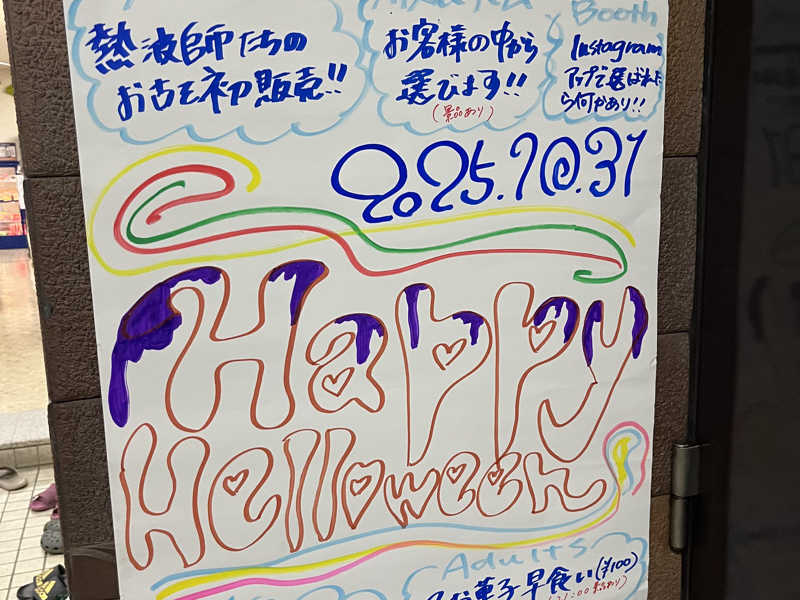 熱波師たちの
お古を初販売!!
お客様の中から
選びます!!
(景品あり)
Booth
Instagram
アップで選ばれた
ら何かあり!!
2025.10.31
Happy
Helloween
Adults
お菓子早食い(¥100)
景品あり)